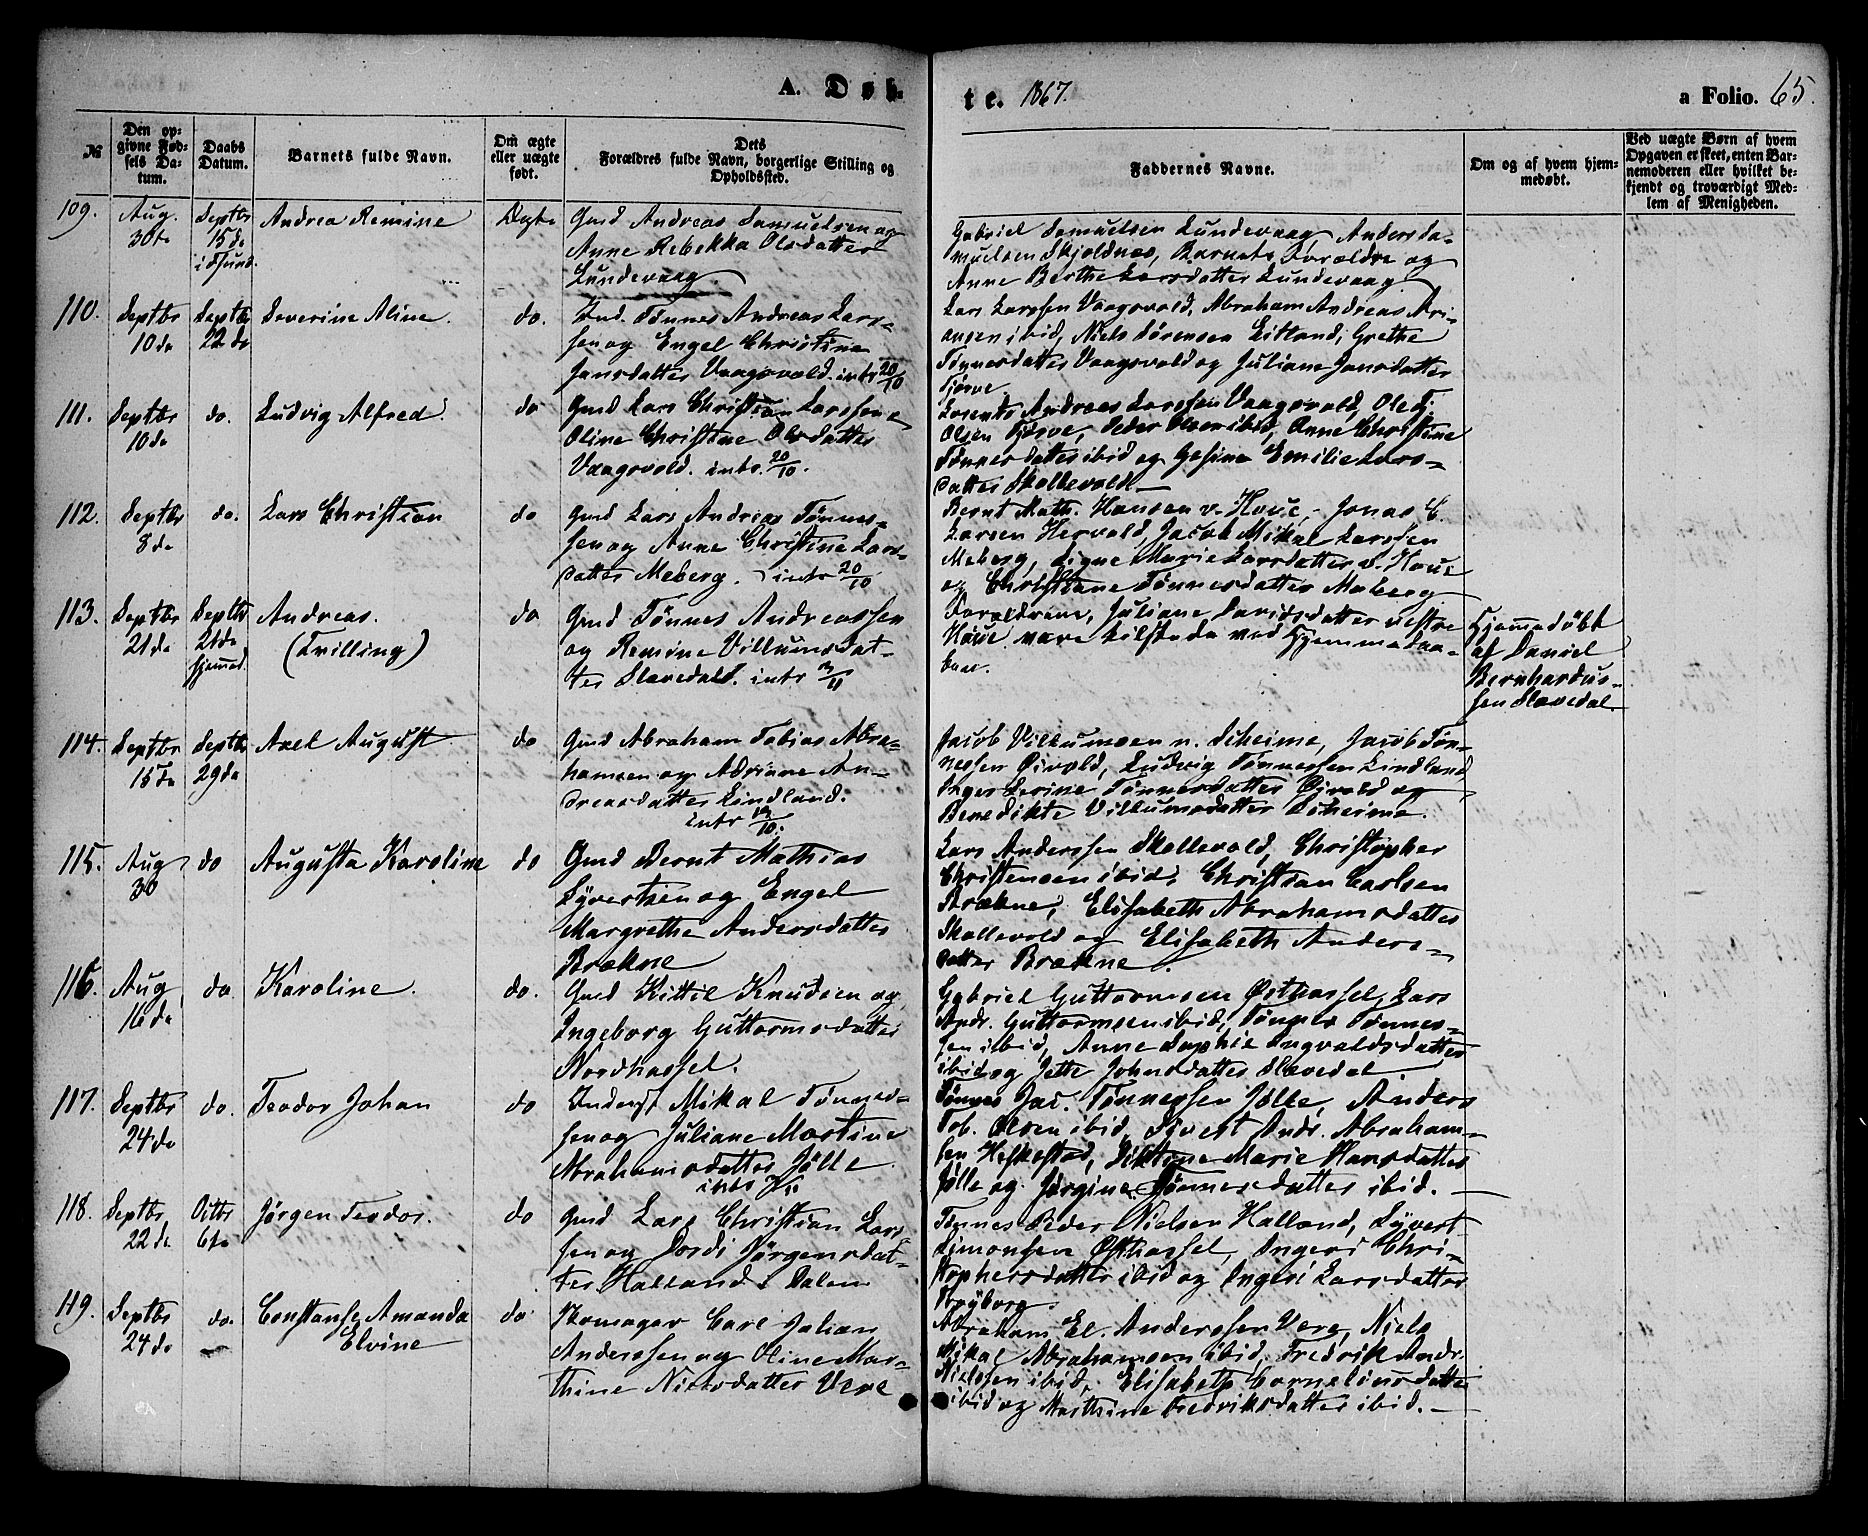 A. Døb-
te. 1867.
a Folio. 65.
№
Den op-
givne Fød-
sels Da-
tum.
Daabs
Datum.
Barnets fulde Navn.
Om ægte
eller uægte
født.
Dets
Forældres fulde Navn, borgerlige Stilling og
Opholdssted.
Faddernes Navne.
Om og af hvem hjem-
medøbt.
Ved uægte Børn af hvem
Opgaven er skeet, enten Bar-
nemoderen eller hvilket be-
kjendt og troværdigt Med-
lem af Menigheden.
109.
Aug.
30te
Septbr
15de
i Fsund.
Andrea Remine
Ægte
Gmd Andreas Samuelsen og
Anne Rebekka Olsdatter
Lundevaag
Gabriel Samuelsen Lundevaag, Anders Sa-
muelsen Skjoldnes, Barnets Forældre og
Anne Berthe Larsdatter Lundevaag
110.
Septbr
10de
Septbr
22de
Severine Aline.
do.
Ind. Tønnes Andreas Lars-
sen og Engel Christine
Jansdatter Vaagsvold. intr 20/10
Lars Larssen Vaagsvold, Abraham Andreas Ari-
ansen ibid, Niels Sørensen Eitland, Grethe
Tønnesdatter Vaagsvold og Juliane Jansdatter
Tjørve
111.
Septbr
10de
do.
Ludvig Alfred.
do
Gmd Lars Christian Larssen og
Oline Christine Olsdatter
Vaagsvold. intr. 20/10.
Lorents Andreas Larssen Vaagsvold, Ole Tj.
Olsen Tjørve, Peder Olsen ibid, Anne Christine
Tønnesdatter ibid og Gesine Emilie Lars-
datter Skollevold
112.
Septbr
8de
do.
Lars Christian
do
Gmd Lars Andreas Tønnes-
sen og Anne Christine Lars-
datter Meberg. intr 20/10
Bernt Math. Hansen v. Houe, Jonas C.
Larsen Hervold, Jacob Mikal Larssen
Meberg, Signe Marie Larsdatter v. Houe
og Christiane Tønnesdatter Meberg
113.
Septbr
21de
Septbr
21de
hjemmed.
Andreas.
(Tvilling)
do
Gmd Tønnes Andreassen
og Remine Villumsdat-
ter Slevedal. intr 3/11
Forældrene, Juliane Davidsdatter vestre
Houe vare tilstede ved Hjemmedaa-
ben.
Hjemmedøbt
af Daniel
Bernhardus-
sen Slevedal
114.
Septbr
15de
Septbr
29de
Axel August
do
Gmd Abraham Tobias Abra-
hamsen og Adriane An-
dreasdatter Lindland.
intr /10.
Jacob Villumsen n. Scheime, Jacob Tøn-
nessen Øivold, Ludvig Tønnessen Lindland
Inger Serine Tønnesdatter Øivold og
Benedikte Villumsdatter Scheime.
115.
Aug
30
do
Augusta Karoline
do
Gmd Bernt Mathias
Syvertsen og Engel
Margrethe Andersdatter
Brækne
Lars Anderssen Skollevold, Christopher
Christensen ibid, Christian Carlsen
Brækne, Elisabeth Abrahamsdatter
Skollevold og Elisabeth Anders-
datter Brækne.
116.
Aug
16de
do
Karoline.
do.
Gmd Kittil Knudsen og
Ingeborg Guttormsdatter
Nordhassel.
Gabriel Guttormsen Østhassel, Lars
Andr. Guttormsen ibid, Tønnes Tønnes-
sen ibid, Anne Sophie Ingvaldsdatter
ibid og Jette Johnsdatter Slevedal
117.
Septbr
24de
do.
Teodor Johan
do
Inderst Mikal Tønnes-
sen og Juliane Martine
Abrahamsdatter Jølle
intr
Tønnes Jac. Tønnessen Jølle, Anders
Tob. Olsen ibid, Sivert Andr. Abraham-
sen Heskestad, Marie Hansdatter
Jølle og Jørgine Tønnesdatter ibid.
118.
Septbr
22de
Octbr
6te
Jørgen Teodor.
do
Gmd Lars Christian Lars-
sen og Dordi Jørgensdat-
ter Halland Dalen
Tønnes Peder Nielsen Halland, Syvert
Simonsen Østhassel, Ingeri Chri-
stophersdatter ibid og Ingeri Larsdatter
119.
Septbr
24de
do.
Constanse Amanda
Elvine
do
Skomager Carl Julian
Anderssen og Oline Mar-
thine Nielsdatter Vere
Abraham El. Anderssen Vere, Niels
Mikal Abrahamsen ibid, Fredrik Andr.
Nielssen ibid, Elisabeth Corneliusdatter
ibid og Marthine Fredriksdatter ibid.